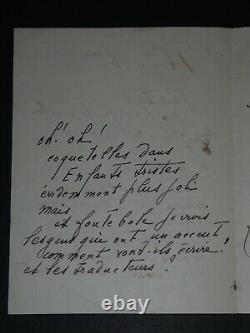 oh! oh!
coquetelles dans
Enfants tristes
évidemment plus joli
mais
et faute bote je crois
les gens qui ont un accent,
comment vont-ils écrire.
et tes traducteurs?
ebay